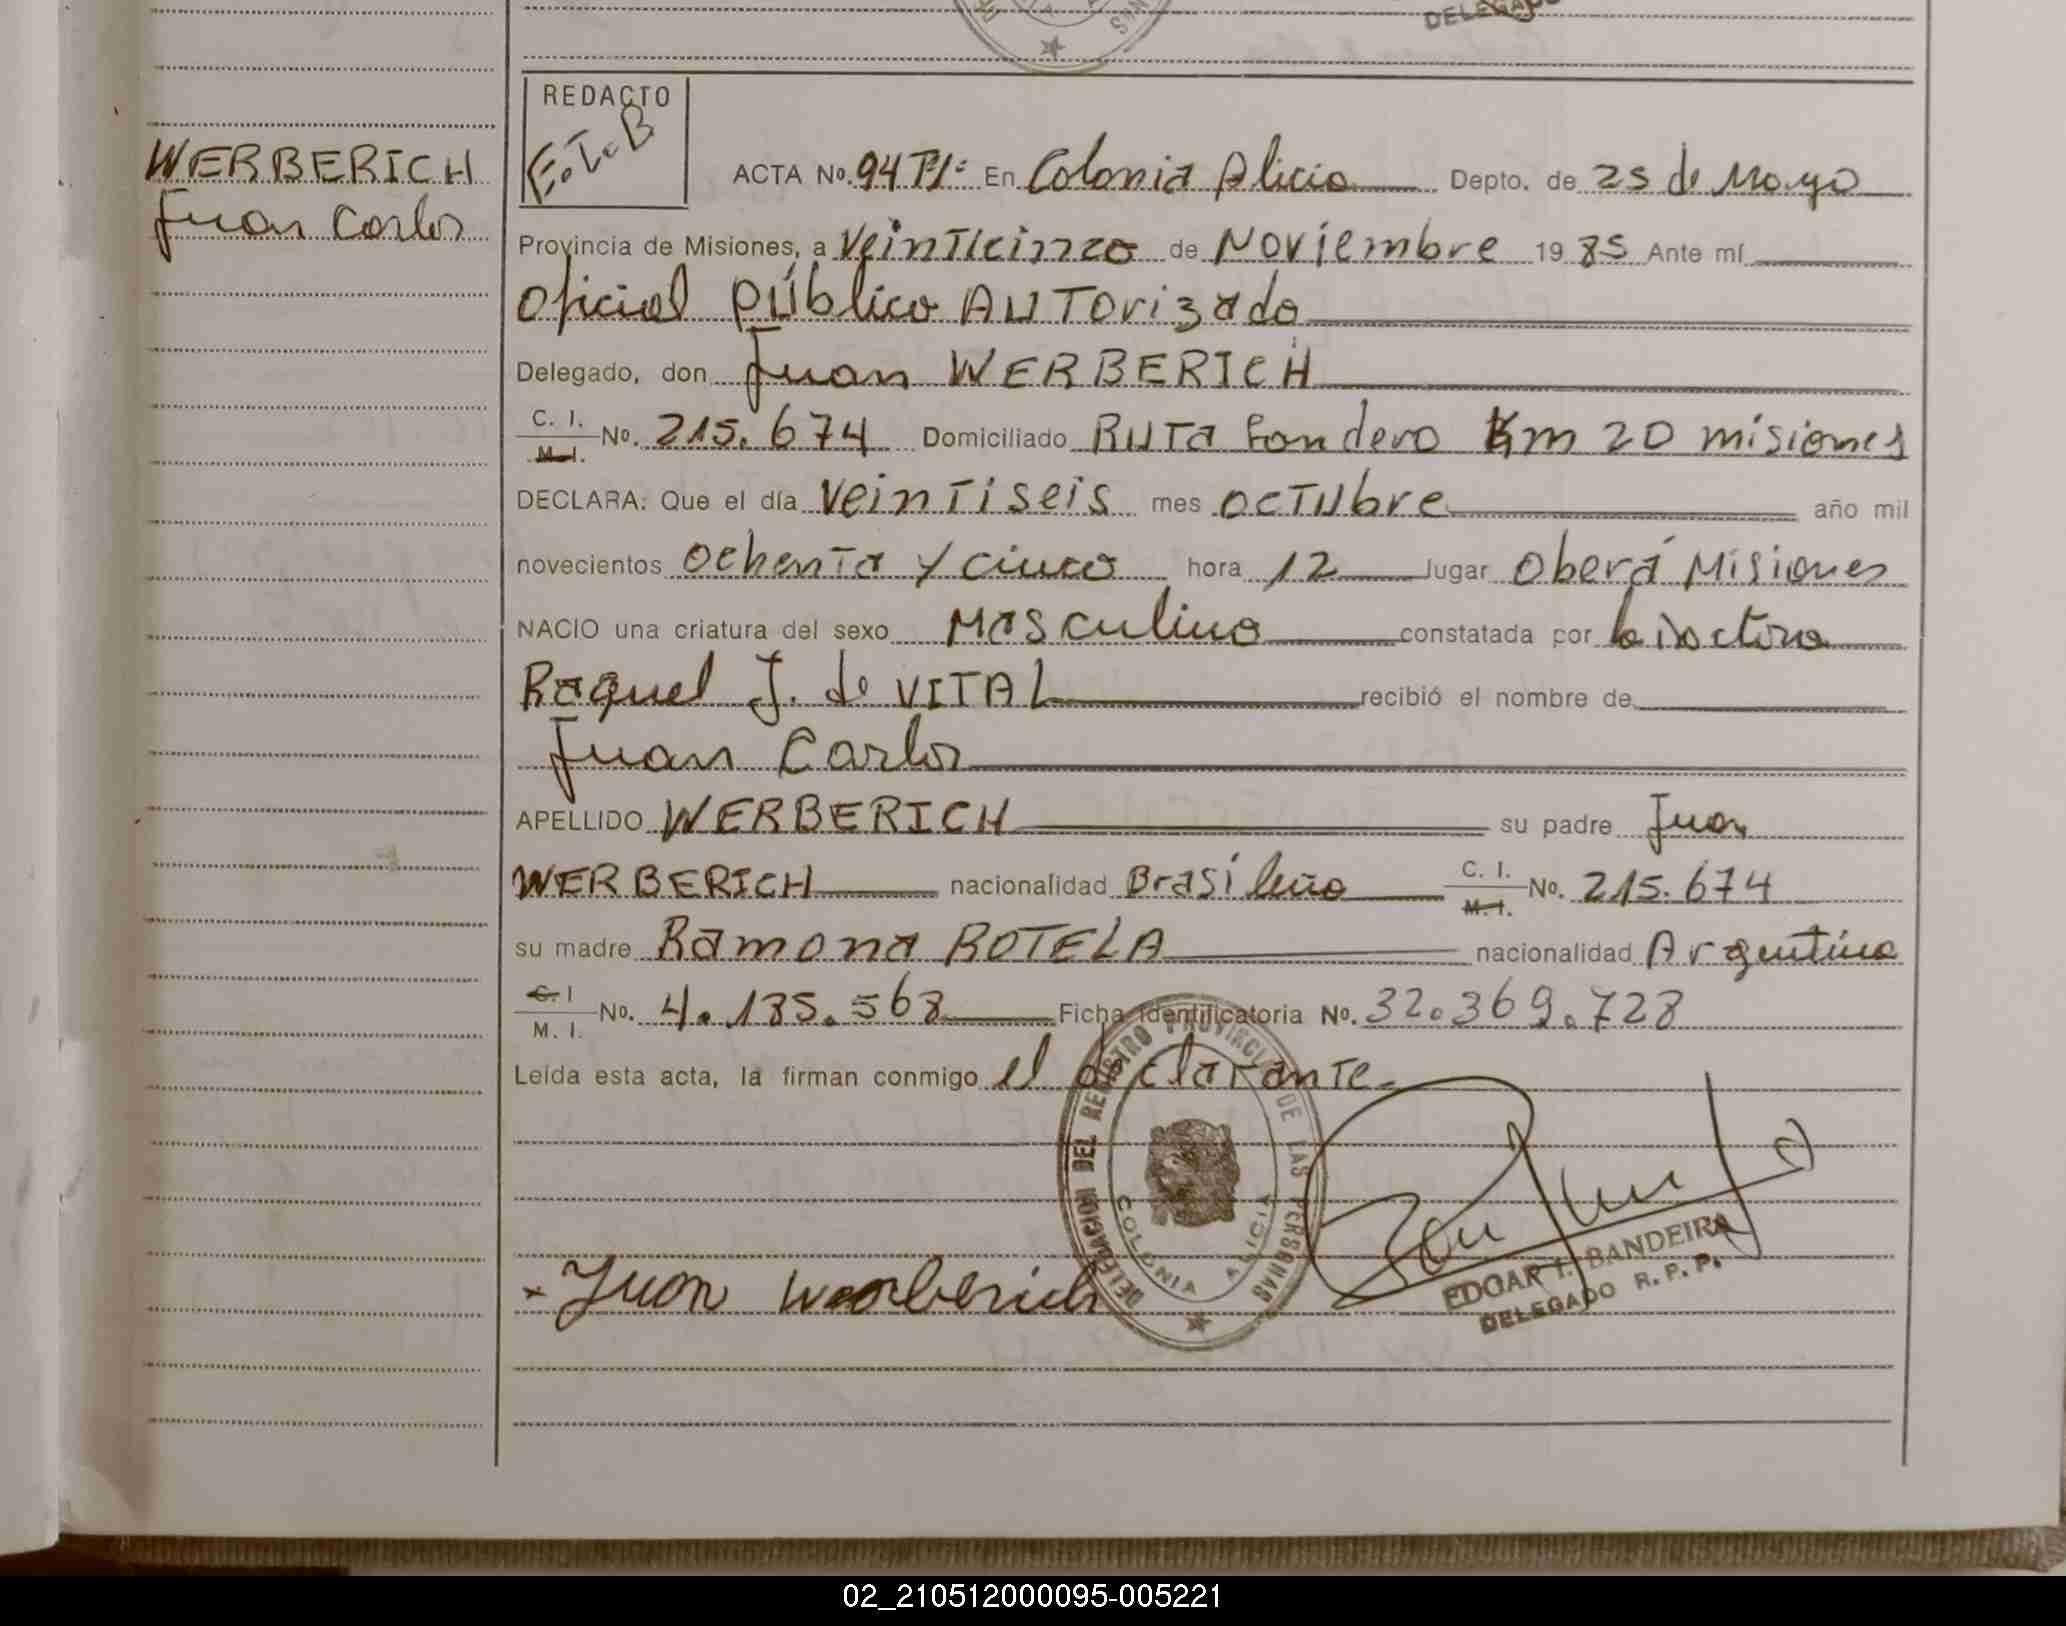 DELEGADO
WERBERICH
Juan Carlos
REDACTO
E.I.B
ACTA No. 94 Tº1º En Colonia Alicia Depto. de 25 de Mayo
Provincia de Misiones, a Veinticinco de Noviembre 1985 Ante mí
Oficial Público AUTorizado
Delegado, don Juan WERBERICH
C. I. M. I. No. 215.674 Domiciliado RUTa Km 20 misiones
DECLARA: Que el día Veintiseis mes OCTUbre año mil
novecientos Ochenta y Cinco hora 12 lugar Oberá Misiones
NACIO una criatura del sexo Masculino constatada por la Doctora
Raquel J. de VITAL recibió el nombre de
Juan Carlos
APELLIDO WERBERICH su padre Juan
WERBERICH nacionalidad Brasileño C. I. M. I. No. 215.674
su madre Ramona ROTELA nacionalidad Argentina
C. I M. I. No. 4.185.568 Ficha Identificatoria No. 32.369.728
Leída esta acta, la firman conmigo el declarante.
DELEGACION DEL REGISTRO PROVINCIAL DE LAS PERSONAS
COLONIA ALICIA
x Juan Werberich
EDGAR I. BANDEIRA
DELEGADO R. P. P.
02_210512000095-005221